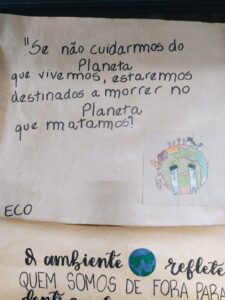 "Se não cuidarmos do
Planeta
que vivemos, estaremos
destinados a morrer no
Planeta
que matamos"!
ECO
O ambiente reflete
QUEM SOMOS DE FORA PARA
dentro